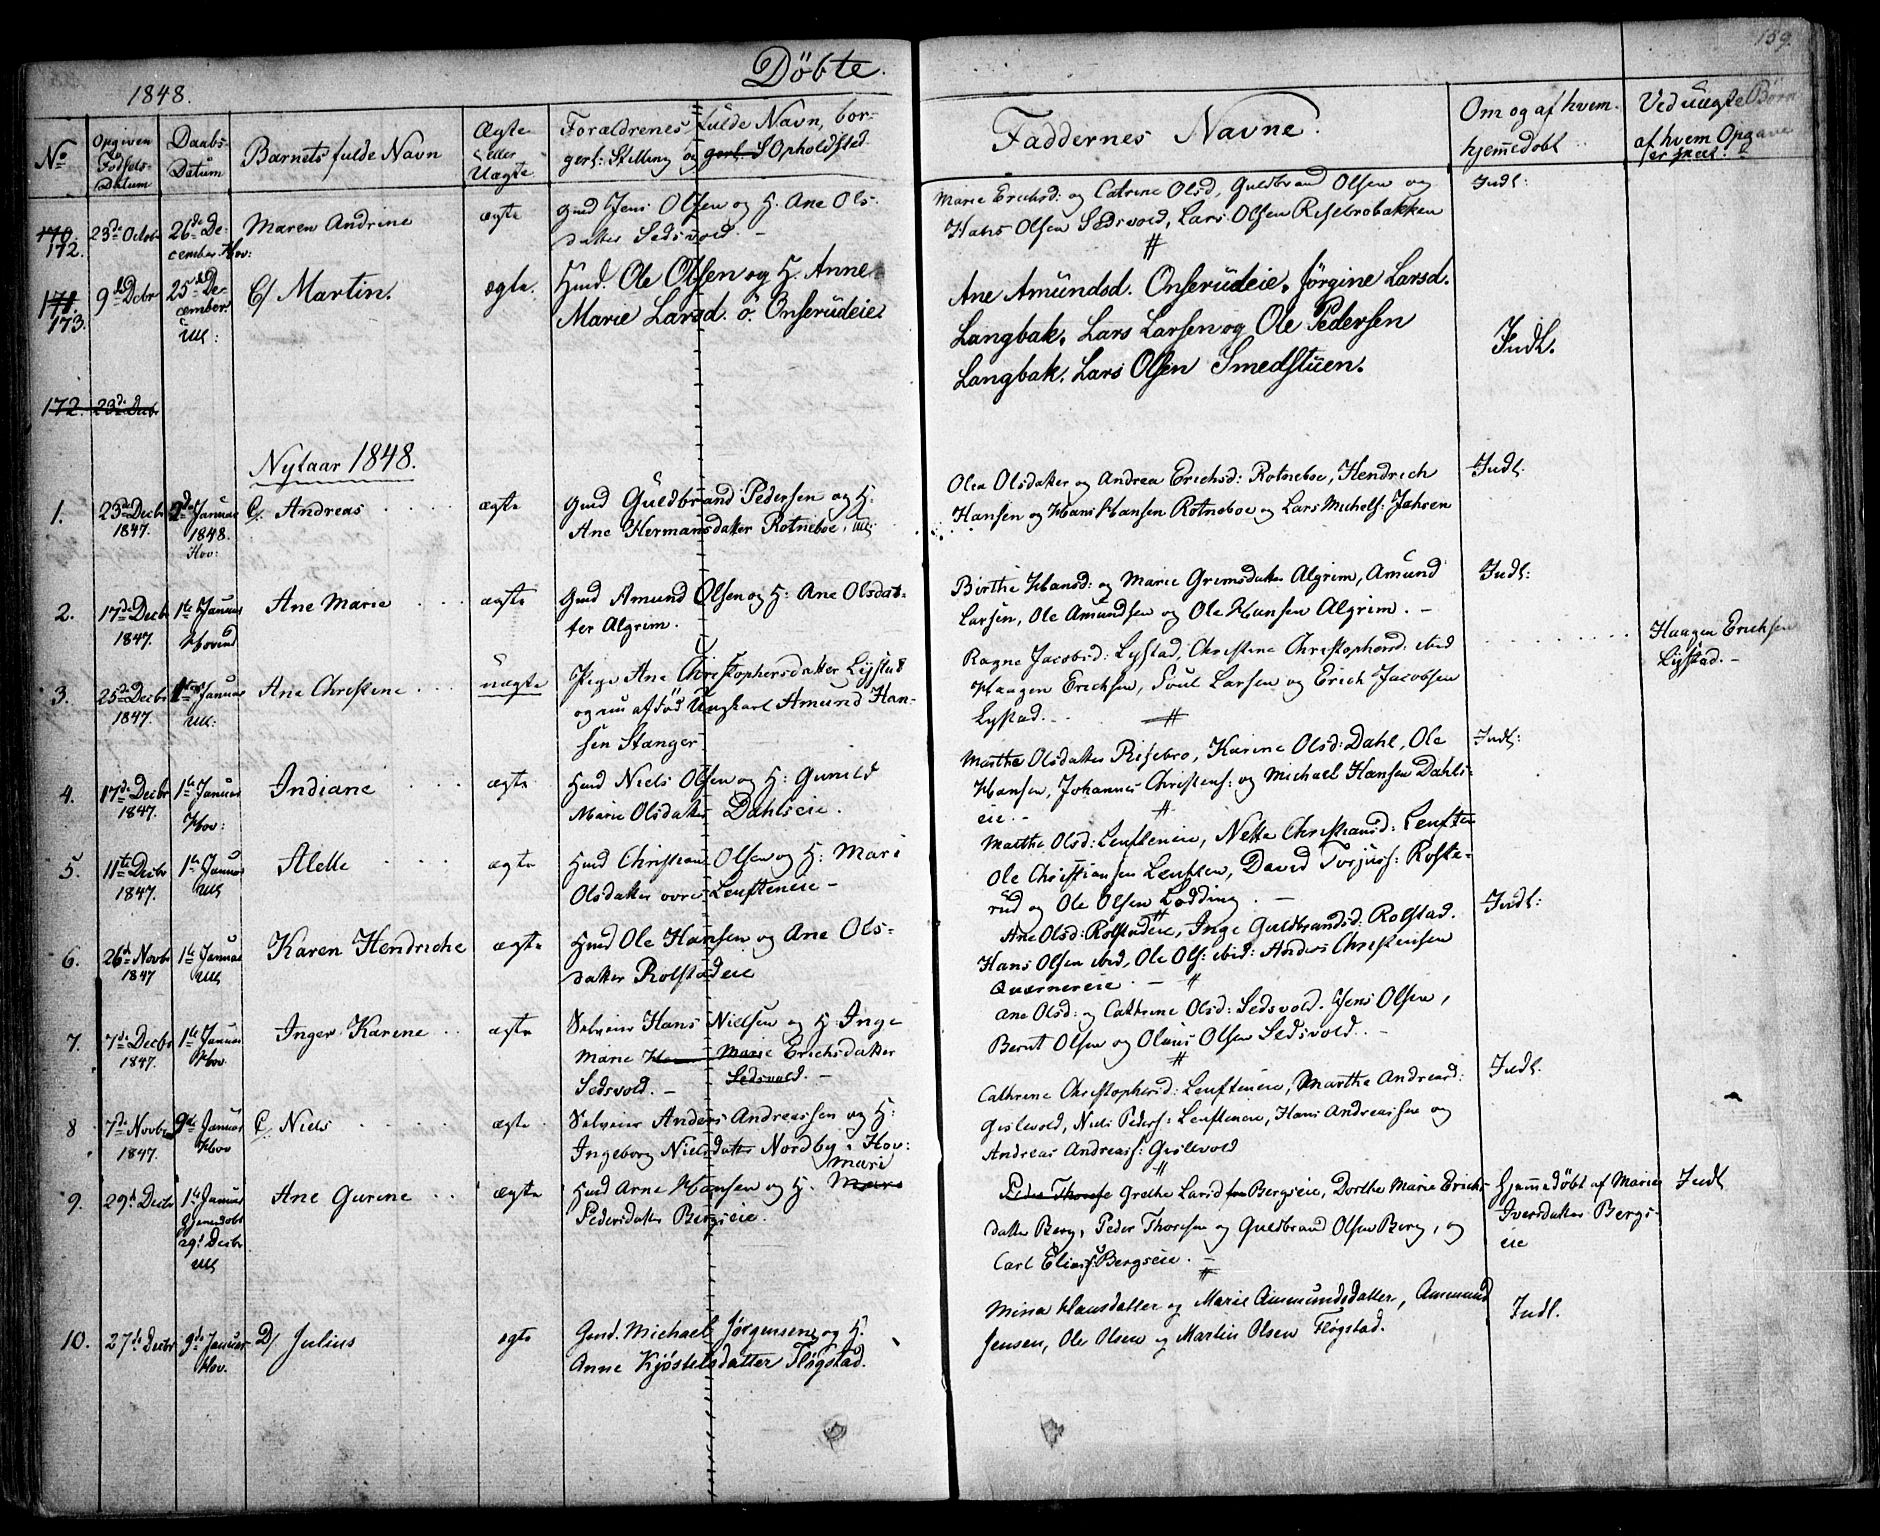 159.
1848. Döbte.
No Opgiven Fødsels-Datum Daabs-Datum Barnets fulde Navn Ægte eller Uægte Forældrenes fulde Navn, bor-gerl: Stilling og Opholdsted Faddernes Navne. Om og af hvem hjemmedøbt Ved uægte Børn af hvem Opgave er skeet:
170. 172. 23de Octob 26de December Hov: Maren Andrine ægte Gmd Jens Olsen og H. Ane Ols-
datter Sedsvold. –
Marie Erichsd: og Catrine Olsd, Guldbrand Olsen og Indl:
Hans Olsen Sedsvold, Lars Olsen Risebrobakken
171. 173. 9d Decbr 25de December. Ull: C/ Martin. ægte. Hmd. Ole Olsen og H. Anne
Marie Larsd. ö. Onserudeie.
Ane Amundsd. Onserudeie, Jörgine Larsd.
Langbak, Lars Larsen og Ole Pedersen Indl.
Langbak, Lars Olsen Smedstuen.
172. 23de Decbr
Nytaar 1848.
1. 23de Decbr 1847. Januar 1848. Hov: C/. Andreas ægte Gmd Guldbrand Pedersen og H.
Ane Hermansdatter Rotneboe, Ull:
Olea Olsdatter og Andrea Erichsd: Rotneboe, Hendrich Indl:
Hansen og Hans Hansen Rotneboe og Lars Michels: Jahren
2. 17de Decbr 1847. 1te Januar Hovind Ane Marie ægte Gmd Amund Olsen og H: Ane Olsdat-
ter Algrim.
Birthe Hansd: og Marie Grimsdatter Algrim, Amund Indl:
Larsen, Ole Amundsen og Ole Hansen Algrim. –
3. 25de Decbr 1847. 1te Januar Ull: Ane Christine uægte Pige Ane Christophersdatter Lystad
og nu afdød Ungkarl Amund Han-
sen Stanger
Ragne Jacobsd: Lystad, Christine Christophersd: ibid Haagen Erichsen
Haagen Erichsen, Svul Larsen og Erich Jacobsen Lystad. –
Lystad. –
4. 17de Decbr 1847. 1te Januar Hov: Indiane ægte Hmd Niels Olsen og H: Gunild
Marie Olsdatter Dahlseie.
Marthe Olsdatter Risebro, Karine Olsd: Dahl, Ole Indl:
Hansen, Johannes Christens: og Michael Hansen Dahls-
eie. –
5. 11te Decbr 1847. 1te Januar Ull Alette ægte Hmd Christian Olsen og H: Mari
Olsdatter øvre Leufteneie –
Marthe Olsd: Leufteneie, Nette Christiansd: Leuften
Ole Christiansen Leuften, David Torjuss: Rofte-
rud og Ole Olsen Lødding.
6. 26de Novbr 1847 1te Januar Ull Karen Hendriche ægte Hmd Ole Hansen og Ane Ols-
datter Rolstadeie
Ane Olsd: Rolstadeie, Inge Guldbrandsd: Rolstad. Indl:
Hans Olsen ibid, Ole Ols: ibid: Anders Christensen
Quærnereie. –
7. 7de Decbr 1847. 1te Januar Hov Inger Karine ægte Selveier Hans Nielsen og H Inge
Marie Marie Erichsdatter
Sedsvold. – Sedsvold. –
Ane Olsd: og Cathrine Olsd: Sedsvold. Jens Olsen,
Bernt Olsen og Olaus Olsen Sedsvold. –
8 7de Novbr 1847. 9de Januar Hov C/. Niels ægte Selveier Anders Andreassen og H:
Ingeborg Nielsdatter Nordby i Hov:
Cathrine Christophersd: Leufteneie, Marthe Andreasd: Indl:
Gislevold, Niels Peders: Leufteneie, Hans Andreassen og
Andreas Andreass: Gislevold
9. 29de Decbr 1te Januar Hjemdøbt 29de Decbr Ull Ane Gurine ægte Hmd Arne Hansen og H. Mari
Pedersdatter Bergseie.
Grethe Larsd Bergseie, Dorthe Marie Erichs- Hjemmedøbt af Marie Indl
datter Berg, Peder Thoresen og Guldbrand Olsen Berg, og Iversdatter Bergs-
Carl Eliass: Bergseie. – eie
10. 27de Decbr 9de Januar Hov. D/ Julius ægte Gmd. Michael Jørgensen og H.
Anne Kjøstelsdatter Fløgstad.
Mina Hansdatter og Marie Ammundsdatter, Ammund Indl.
Jensen, Ole Olsen og Martin Olsen Fløgstad.